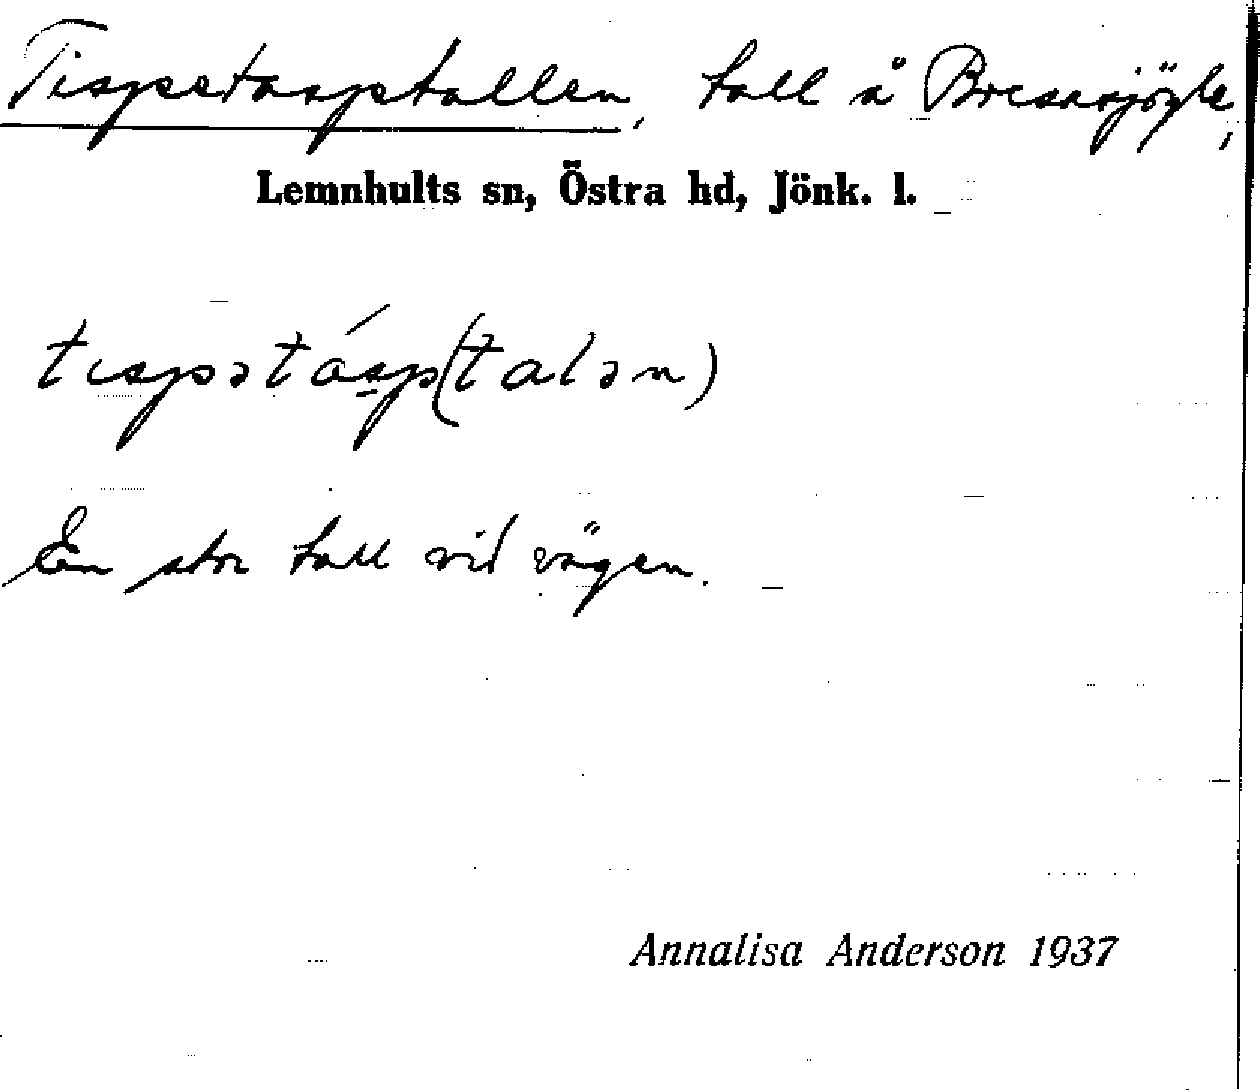 Tispetasptallen, tall å
Lemnhults sn, Östra hd, Jönk. l.
tɩspətásp(talən)
En stor tall vid vägen.
Annalisa Anderson 1937